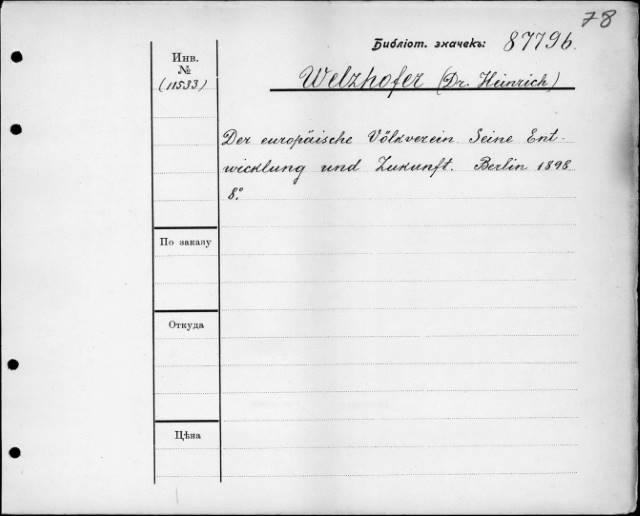 78
Библіот. значекъ: 87796.
Инв.
№
(11533)
Welzhofer (Dr. Heinrich)
Der europäische Völkverein Seine Ent-
wicklung und Zukunft. Berlin 1898
8°.
По заказу
Откуда
Цѣна